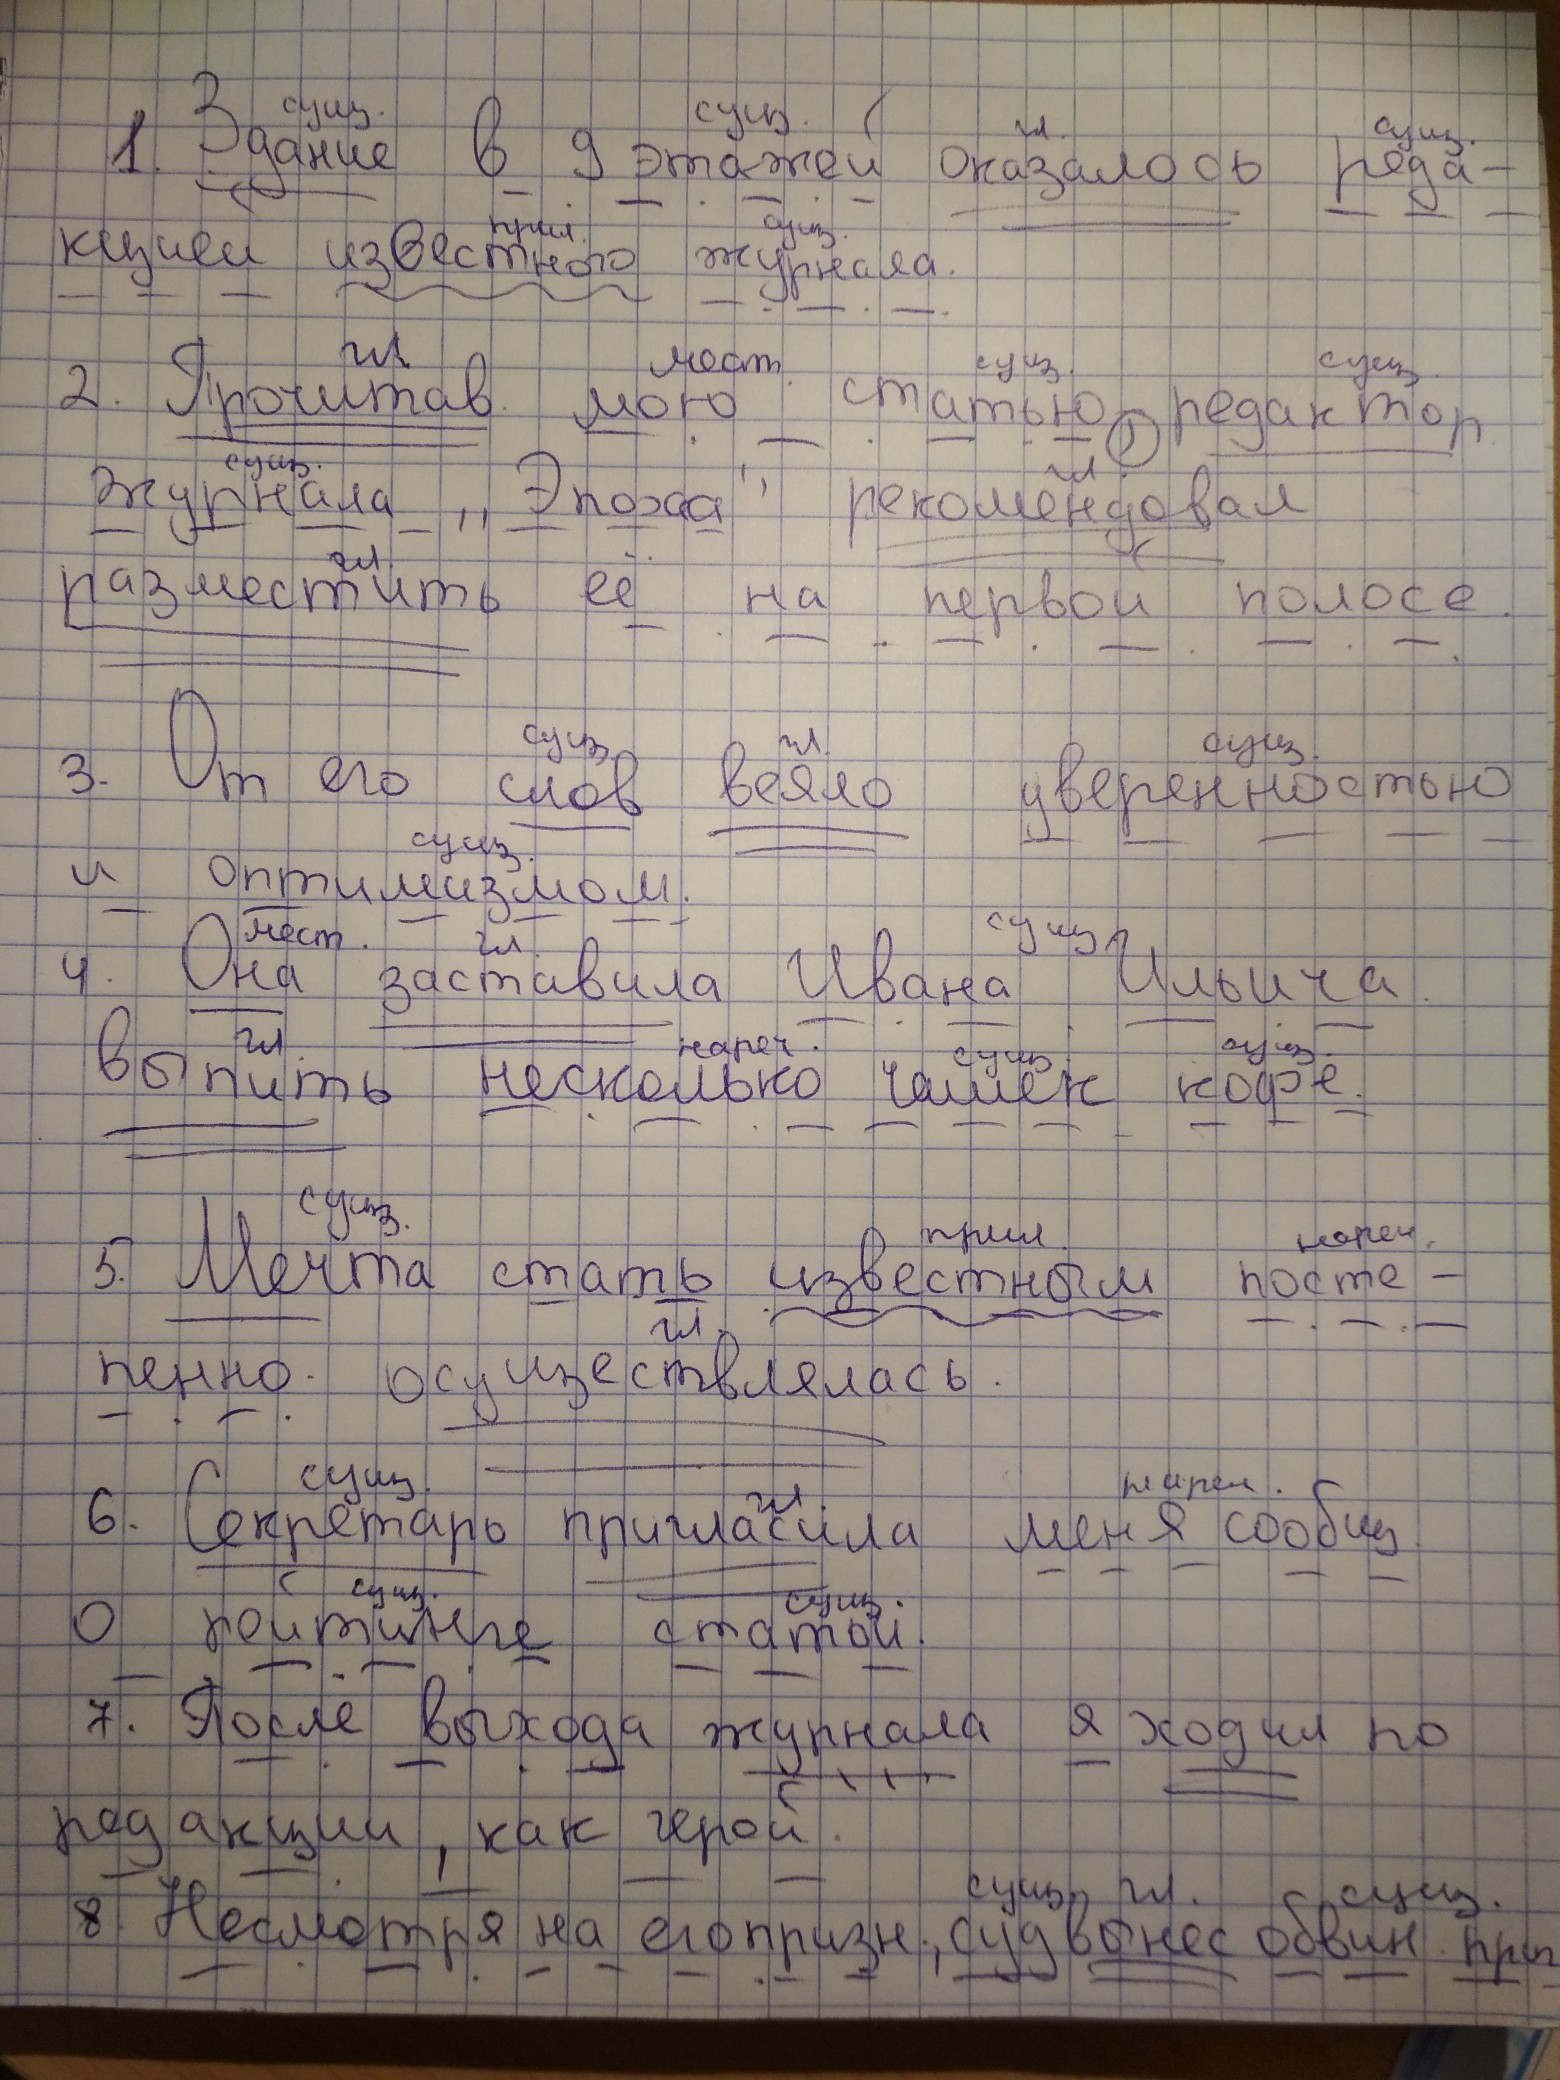 сущ. сущ. гл. сущ.
1. Здание в 9 этажей оказалось реда-
прил. сущ.
кцией известного журнала.
гл мест. сущ. сущ.
2. Прочитав мою статью, редактор
сущ. гл
журнала ,,Эпоха" рекомендовал
гл.
разместить её на первой полосе.
сущ гл. сущ.
3. От его слов веяло уверенностью
сущ.
и оптимизмом.
мест. гл. сущ
4. Она заставила Ивана Ильича
гл. нареч. сущ. сущ.
выпить несколько чашек кофе.
сущ. прил. нареч.
5. Мечта стать известным посте-
гл.
пенно осуществлялась.
сущ. гл. нареч.
6. Секретарь пригласила меня сообщ
сущ. сущ.
о рейтинге статей.
7. После выхода журнала я ходил по
редакции, как герой.
сущ. гл. сущ.
8. Несмотря на его призн., суд вынес обвин. приг